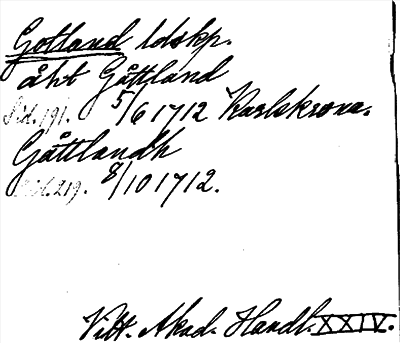 Gotland ldskp.
åht Gåttland
Sid. 191. 5/6 1712 Karlskrona.
Gåttlandh
Sid. 219. 8/10 1712.
Vitt. Akad. Handl. XXIV.